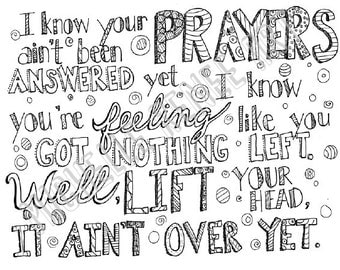 I know your PRAYERS
ain't been
ANSWERED yet. I know
you're feeling like you
GOT NOTHING LEFT.
Well, LIFT YOUR
HEAD,
IT AIN'T OVER YET.